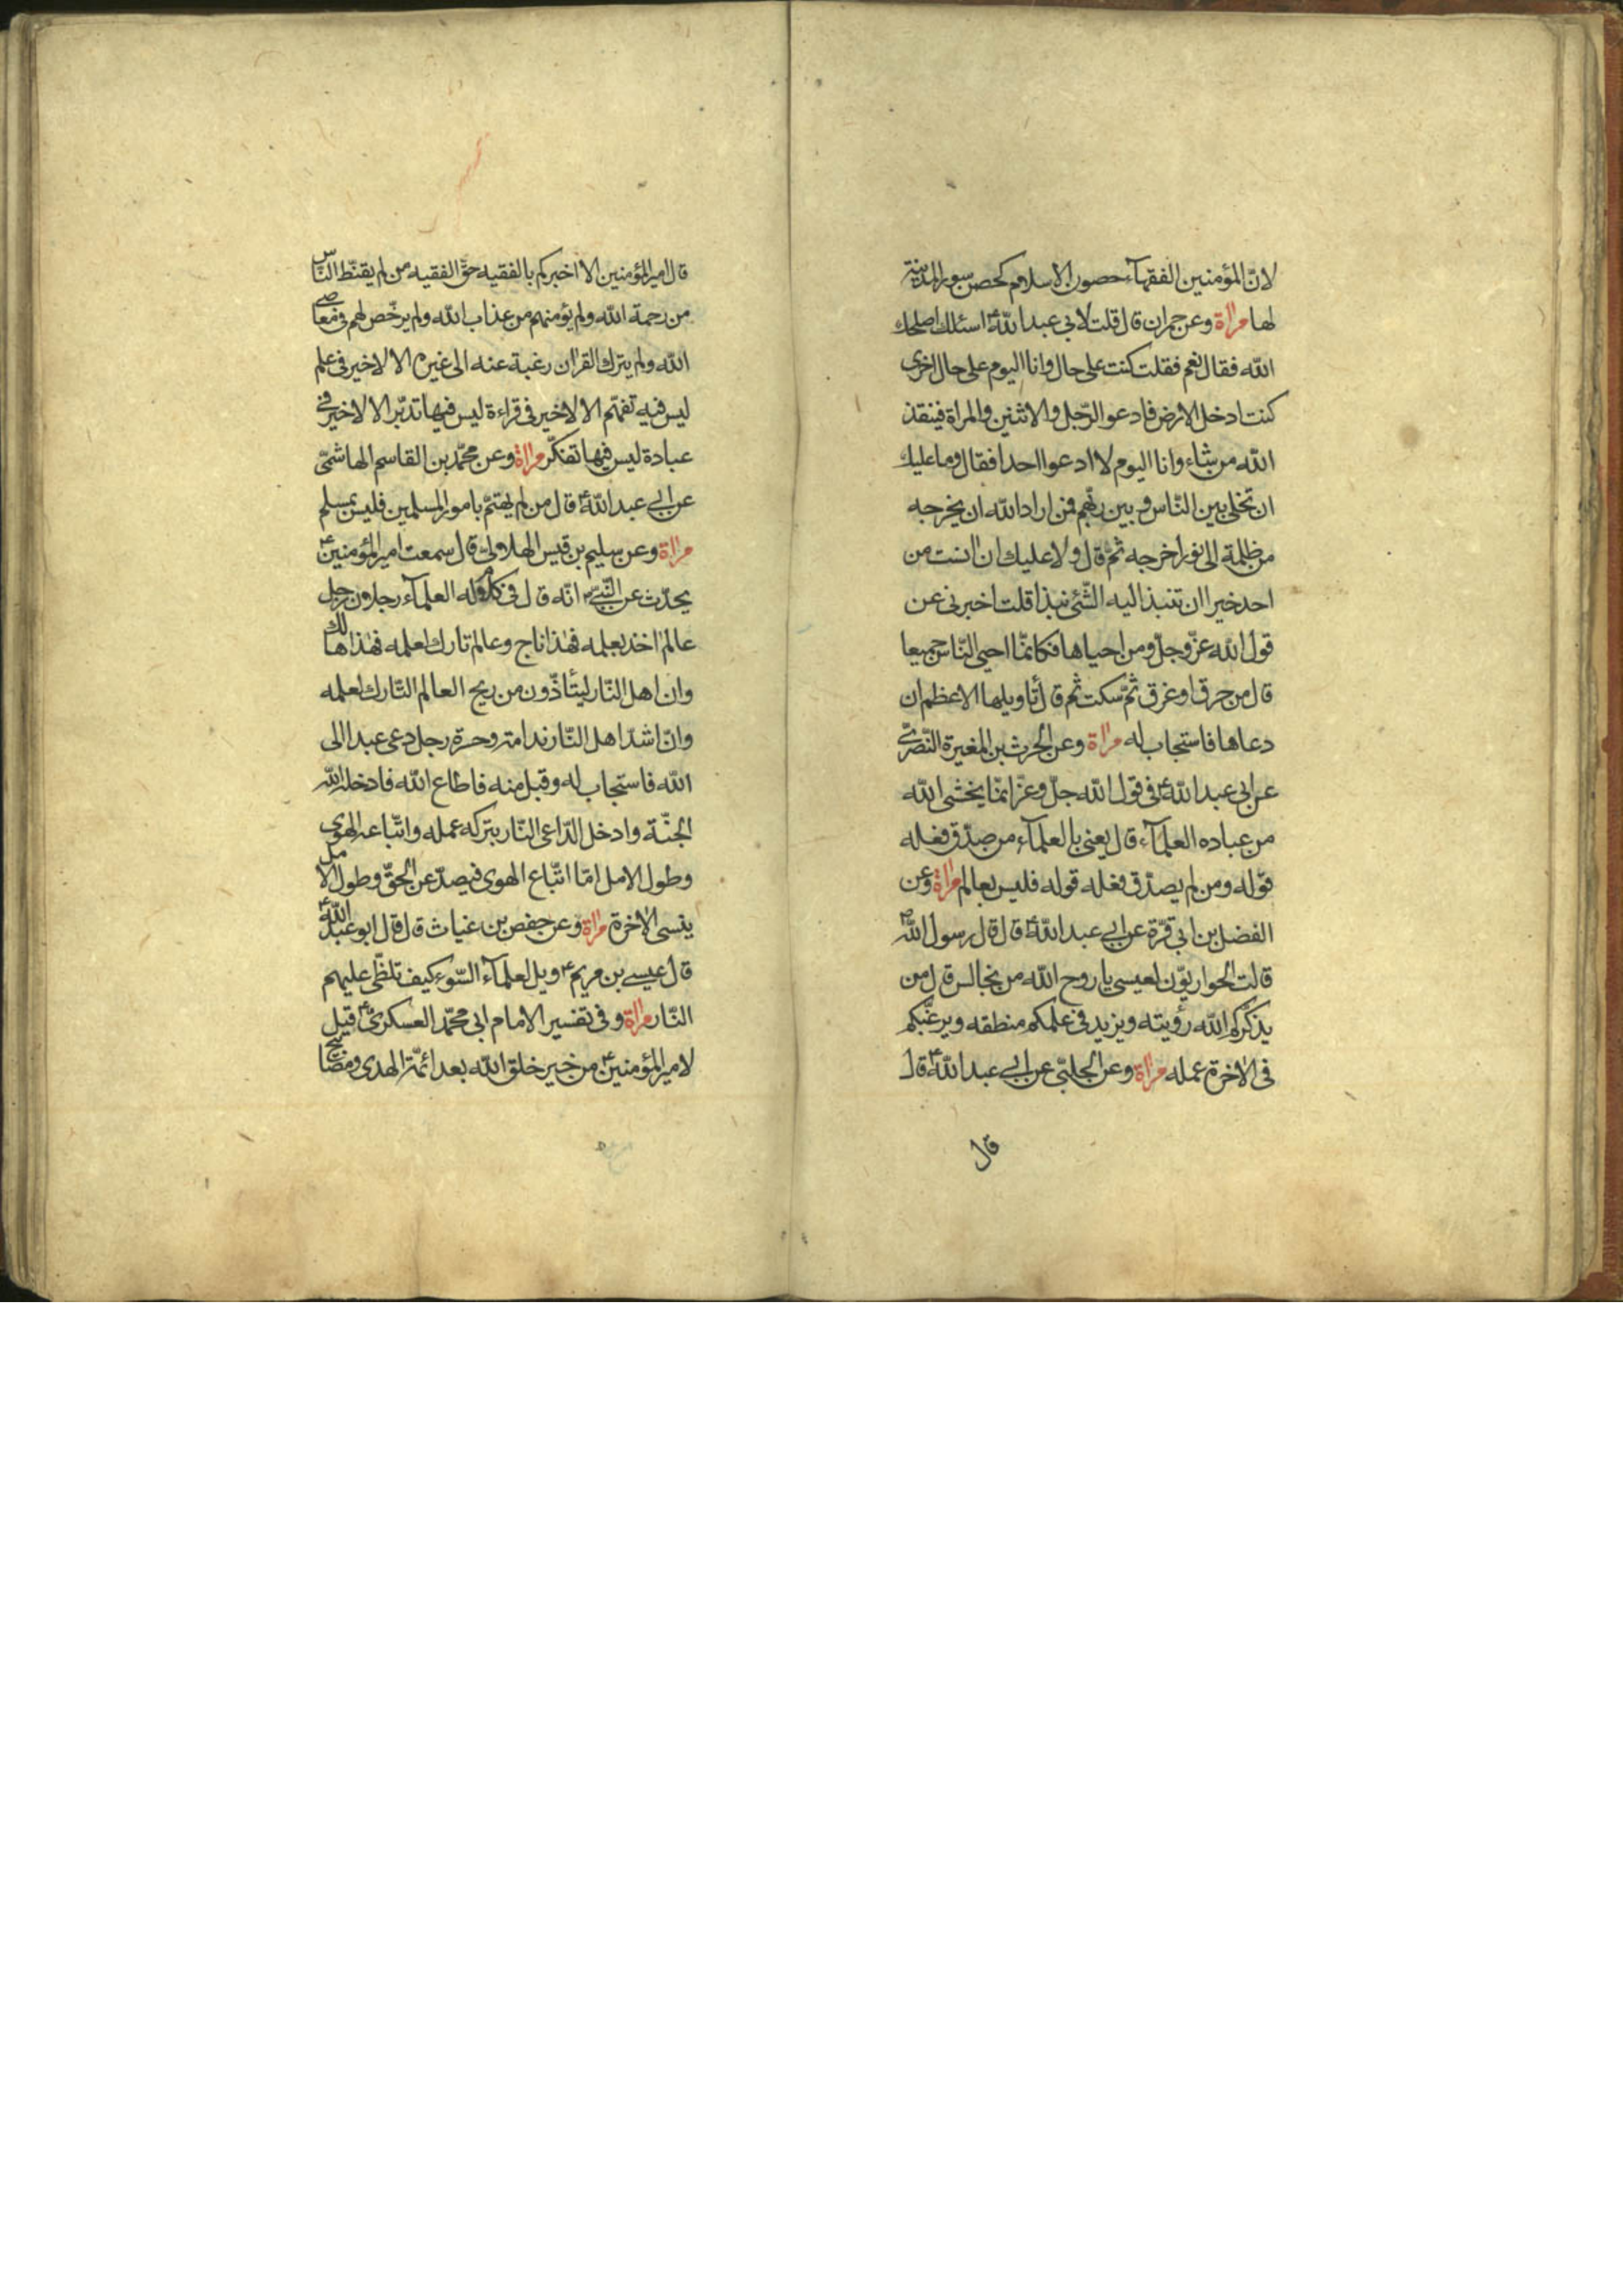 لانّ المؤمنين الفقهآء حصون الاسلام كحصن سور المدينة
لها مرآة وعن حمران قال قلت لابي عبد الله ع اسئلك اصلحك
الله فقال نعم فقلت كنت على حال وانا اليوم على حال اخرى
كنت ادخل الارض فادعو الرّجل والاثنين والمراة فينقذ
الله من شاء وانا اليوم لا ادعوا احدا فقال وما عليك
ان تخلى بين النّاس وبين ربّهم فمن اراد الله ان يخرجه
من ظلمة الى نور اخرجه ثمّ قال ولا عليك ان انست من
احد خيرا ان تنبذ اليه الشّئ نبذا قلت اخبرنى عن
قول الله عزّ وجلّ ومن احياها فكانّما احيى النّاس جميعا
قال من حرق او غرق ثمّ سكت ثم قال تاويلها الاعظم ان
دعاها فاستجاب له مرآة وعن الحرث بن المغيرة النّصرىّ
عن ابى عبد الله ع فى قول الله جلّ وعزّ انمّا يخشى الله
من عباده العلمآء قال يعنى بالعلمآء من صدّق فعله
قوله ومن لم يصدّق فعله قوله فليس بعالم مرآة وعن
الفضل بن ابى قرّة عن ابي عبد الله ع قال قال رسول الله ص
قالت الحواريّون لعيسى يا روح الله من نجالس قال من
يذكّركم الله رؤيته ويزيد فى علمكم منطقه ويرغّبكم
فى الاخرة عمله مرآة وعن الحلبّى عن ابي عبد الله ع قال
قال
قال امير المؤمنين الا اخبركم بالفقيه حقّ الفقيه من لم يقنّط النّاس
من رحمة الله ولم يؤمنهم من عذاب الله ولم يرخّص لهم فى معاصى
الله ولم يترك القران رغبة عنه الى غيره الا لا خير فى علم
ليس فيه تفهّم الا لا خير فى قراءة ليس فيها تدبّر الا لا خير فى
عبادة ليس فيها تفكّر مرآة وعن محمّد بن القاسم الهاشمىّ
عن ابي عبد الله ع قال من لم يهتمّ بامور المسلمين فليس بمسلم
مرآة وعن سليم بن قيس الهلالىّ قال سمعت امير المؤمنين ع
يحدّث عن النّبىّ ص انّه قال فى كلام له العلمآء رجلان رجل
عالم اخذ بعلمه فهذا ناج وعالم تارك لعلمه فهذا هالك
وان اهل النّار ليتأذّون من ريح العالم التّارك لعلمه
وانّ اشدّ اهل النّار ندامة وحسرة رجل دعى عبدا الى
الله فاستجاب له وقبل منه فاطاع الله فادخله الله
الجنّة وادخل الدّاعى النّار بتركه عمله واتّباعه الهوى
وطول الامل امّا اتّباع الهوى فيصدّ عن الحقّ وطول الامل
ينسى الاخرة مرآة وعن حفص بن غياث قال قال ابو عبد الله ع
قال عيسى بن مريم ع ويل لعلمآء السّوء كيف تلظّى عليهم
النّار مرآة وفى تفسير الامام ابى محمّد العسكرىّ ع قيل
لامير المؤمنين ع من خير خلق الله بعد ائمّة الهدى ومصابيح